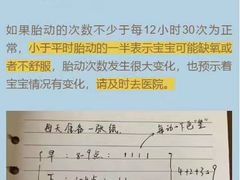 如果胎动的次数不少于每12小时30次为正
常，小于平时胎动的一半表示宝宝可能缺氧或
者不舒服，胎动次数发生很大变化，也预示着
宝宝情况有变化，请及时去医院。
每天准备一张纸
每动一下画"竖"
早：8-9点：1111
4+2+3=9